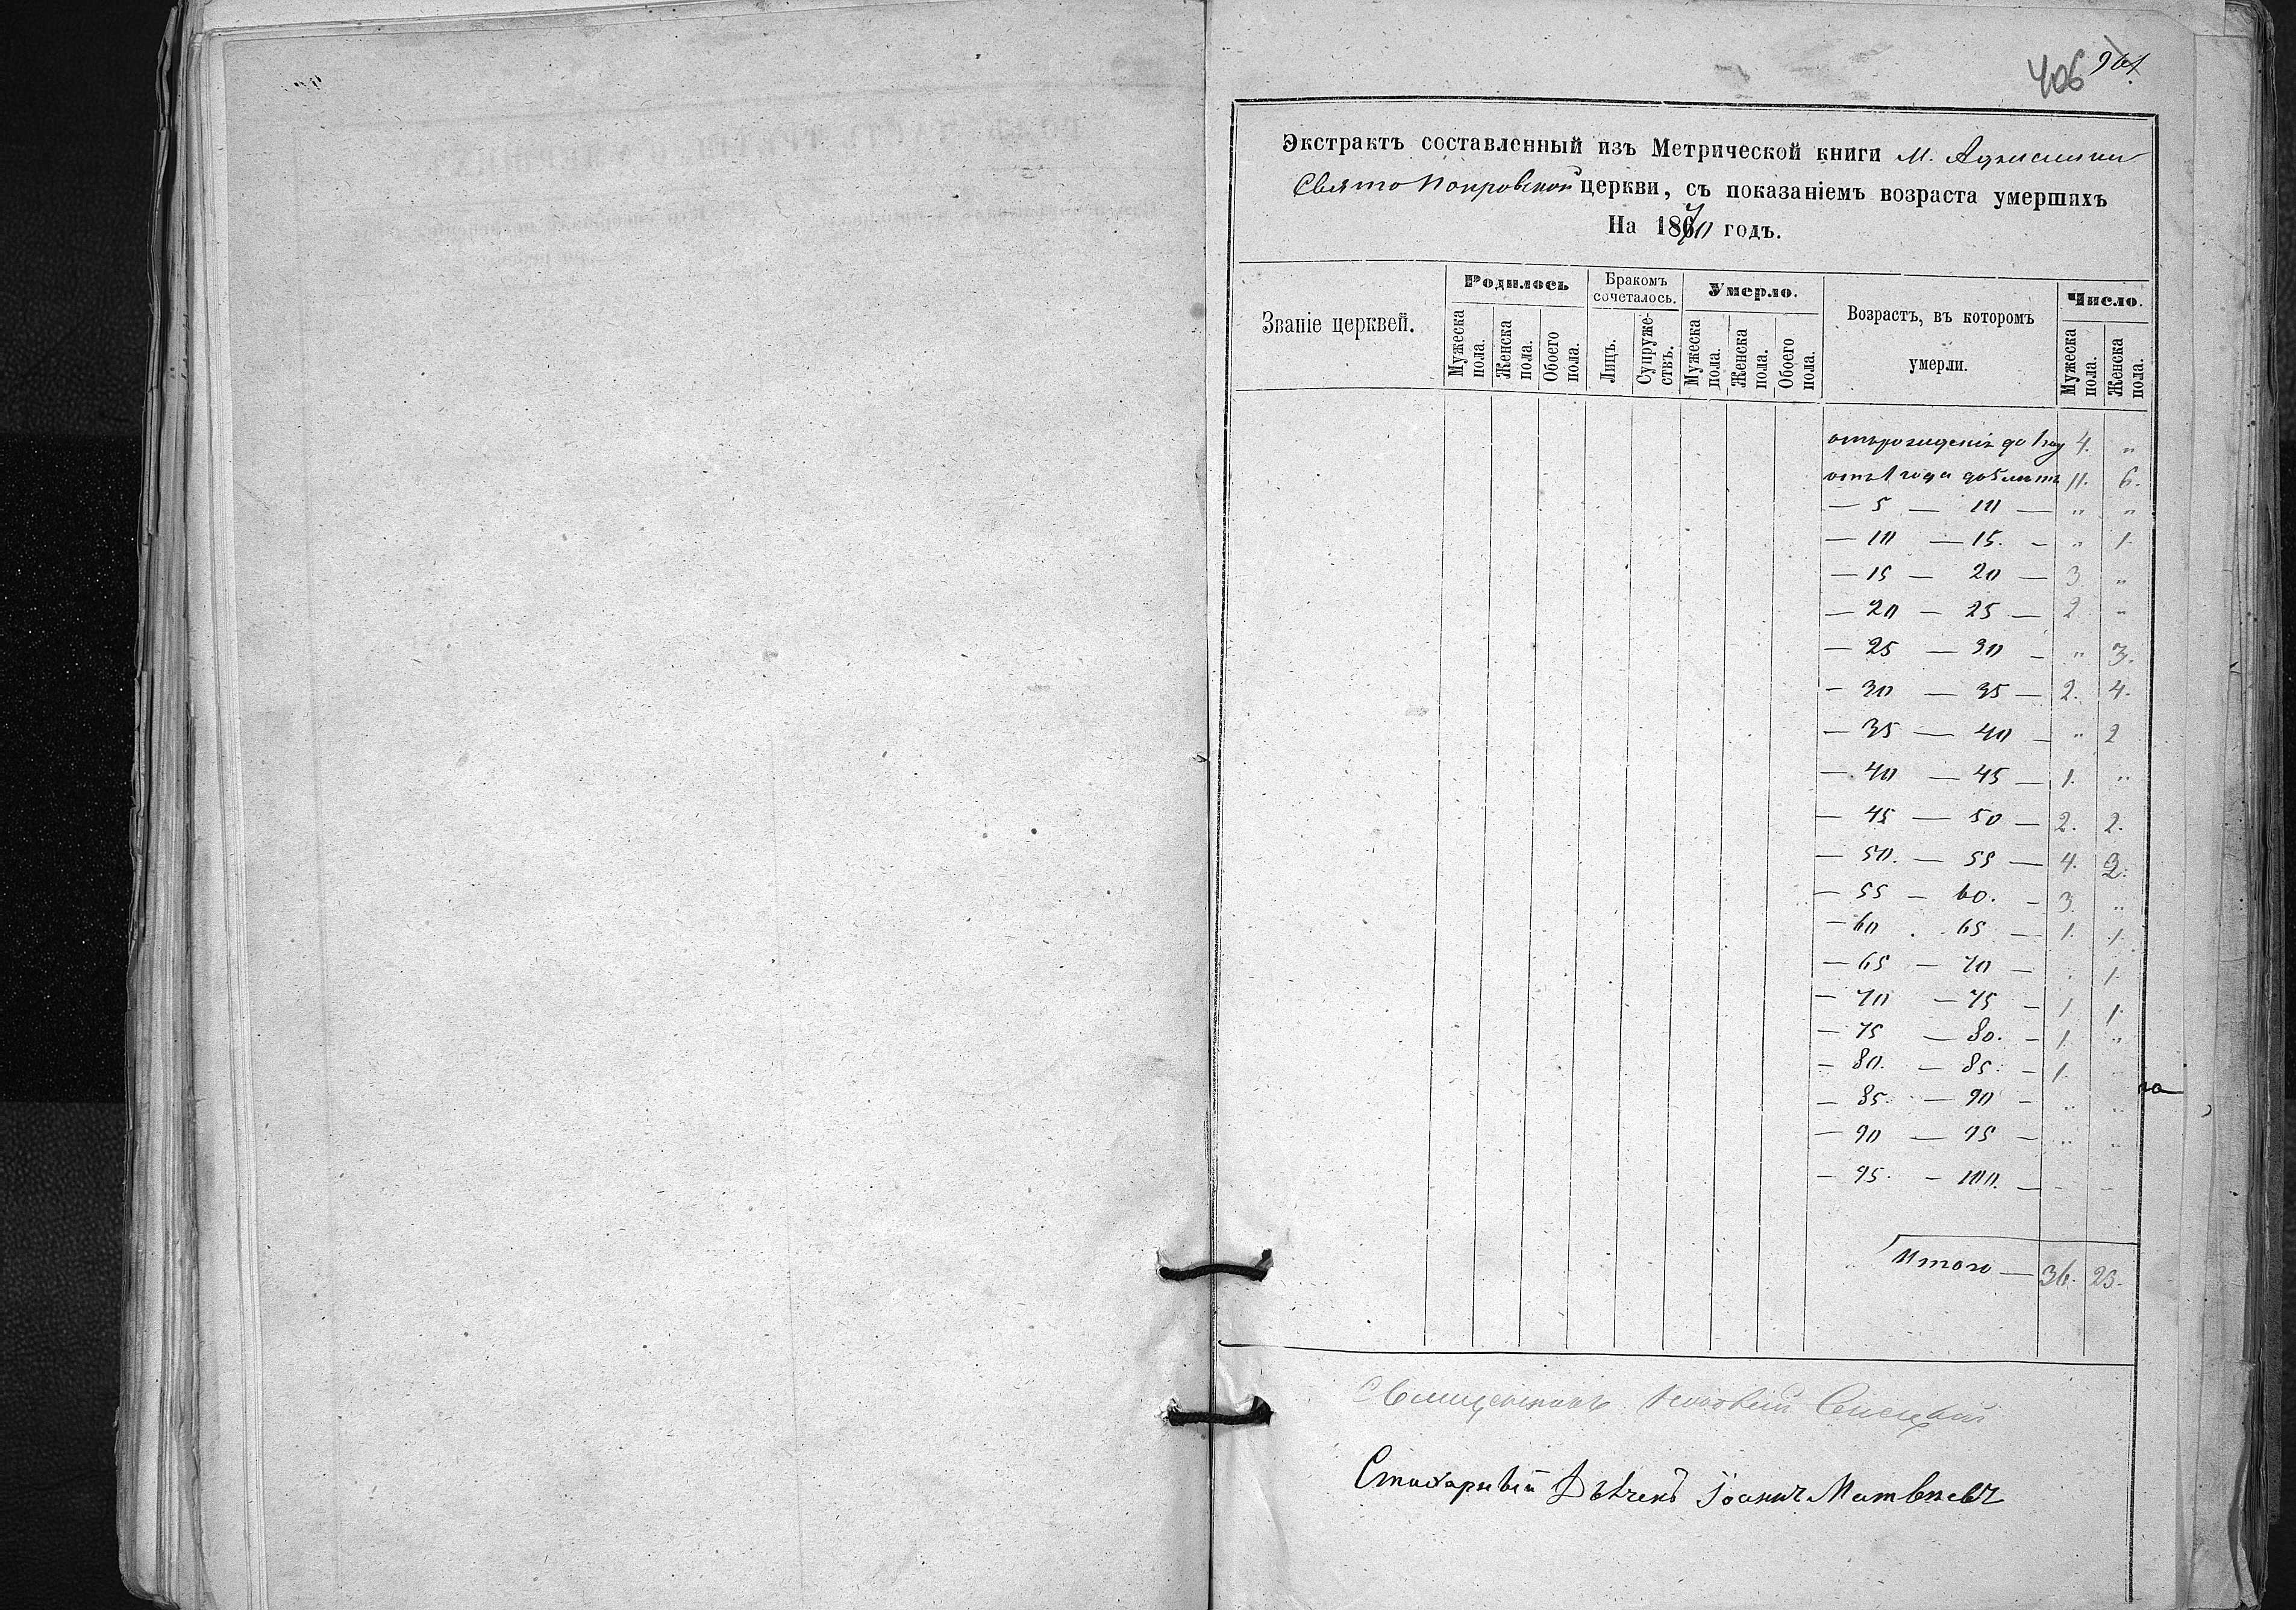 406
Экстрактъ составленный изъ Метрической книги м.
Свято Покровской церкви, съ показаніемъ возраста умершихъ
На 1870 годъ.
Званіе церквей.
Родилось
Бракомъ сочеталось.
Умерло.
Возрастъ, въ которомъ умерли.
Число.
Мужеска пола.
Женска пола.
Обоего пола.
Лицъ.
Супружествъ.
Мужеска пола.
Женска пола.
Обоего пола.
Мужеска пола.
Женска пола.
отъ рожденія до 1 году 4. "
отъ 1 года до 5 летъ 11. 6.
— 5 — 10 — " "
— 10 — 15. — " 1.
— 15 — 20 — 3 "
— 20 — 25 — 2 "
— 25 — 30 — " 3.
— 30 — 35 — 2. 4.
— 35 — 40 — " 2
— 40 — 45 — 1. "
— 45 — 50 — 2. 2.
— 50. — 55 — 4. 2.
— 55 — 60. — 3. "
— 60 . 65 — 1. 1.
— 65 — 70 — " 1.
— 70 — 75 — 1 1.
— 75 — 80. — 1. "
— 80. — 85. — 1. "
— 85. — 90 — " "
— 90 — 95 — " "
— 95. — 100. — - -
Итого — 36. 23.
Священникъ
Стихарный Дьячекъ Іоаннъ Матвѣевъ